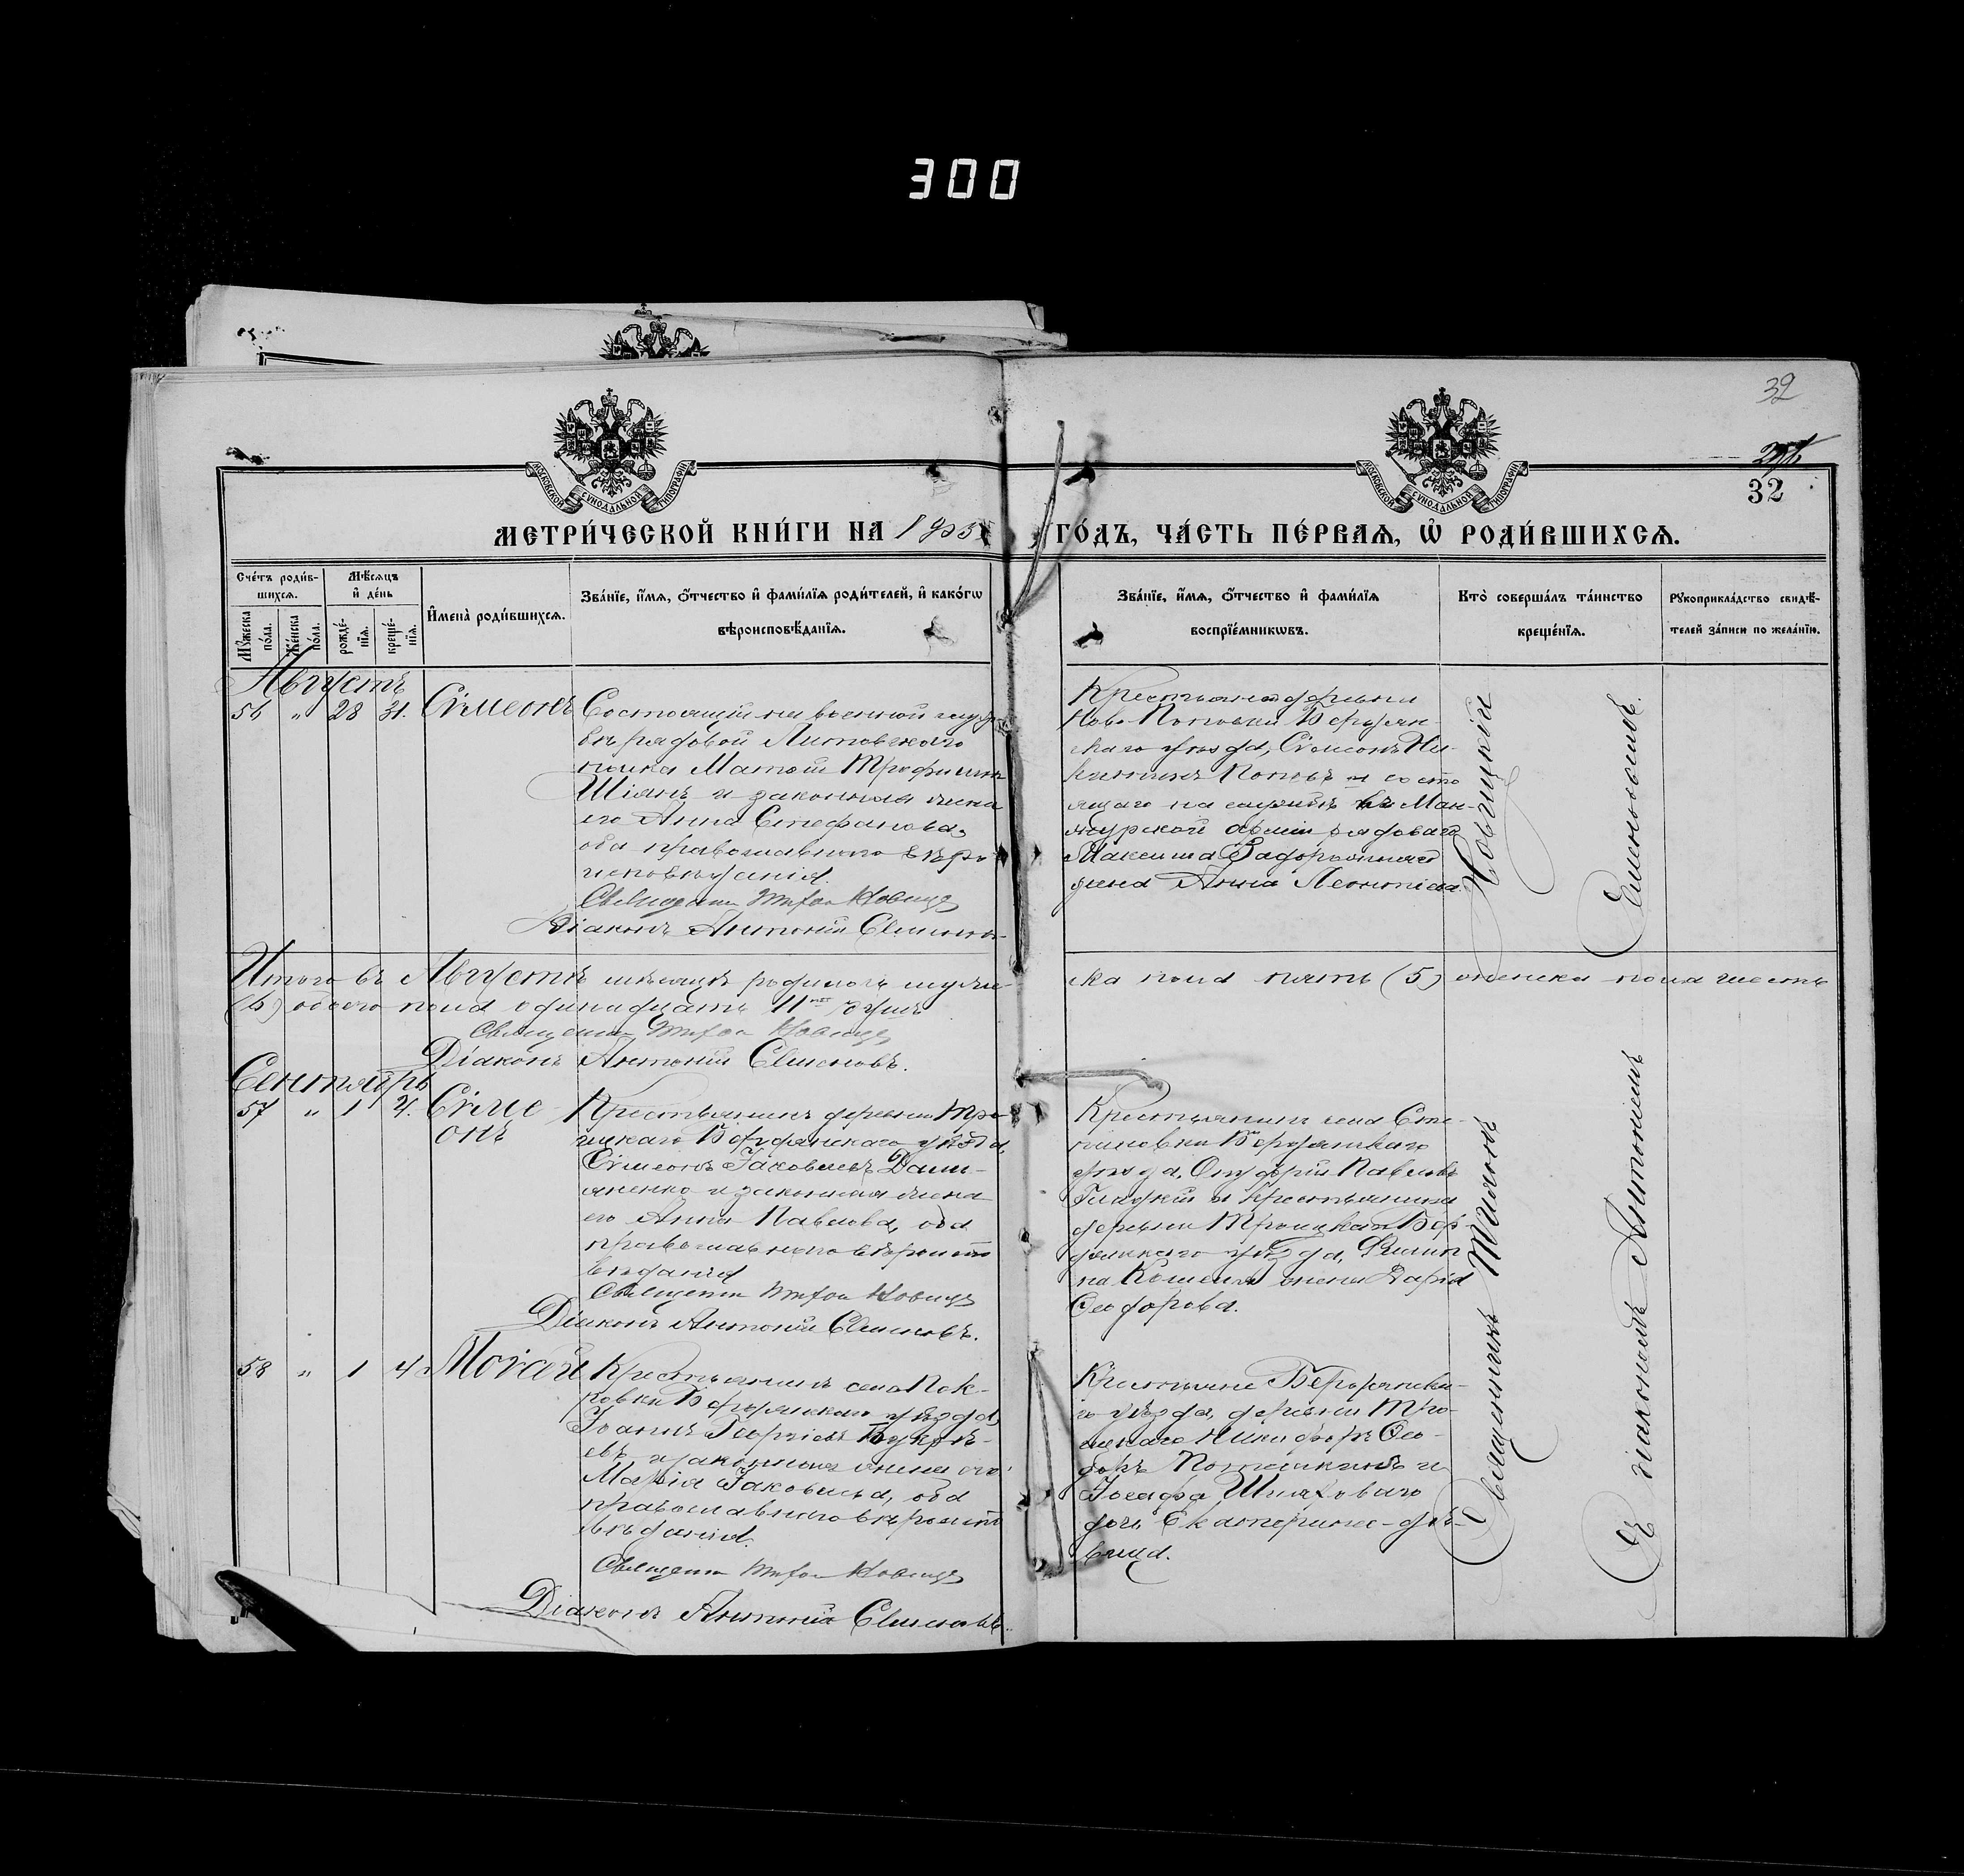 300
32
32
МОСКОВСКОЙ СѴНОДАЛЬНОЙ ТИПОГРАФІИ
МОСКОВСКОЙ СѴНОДАЛЬНОЙ ТИПОГРАФІИ
МЕТРИ́ЧЕСКОЙ КНИ́ГИ НА 1905 ГО́ДЪ, ЧА́СТЬ ПЕ́РВАѦ, Ѡ҆ РОДИ́ВШИХСѦ.
Сче́тъ роди́в-
шихсѧ.
Мꙋ́жеска по́ла.
Же́нска по́ла.
Мѣ́сѧцъ
и҆ де́нь
рожде́-нїѧ.
креще́-нїѧ.
И҆мена̀ роди́вшихсѧ.
Зва́нїе, и҆́мѧ, ѻ҆́тчество и҆ фамѝлїѧ роди́телей, и҆ како́гѡ
вѣроисповѣ́данїѧ.
Зва́нїе, и҆́мѧ, ѻ҆́тчество и҆ фамѝлїѧ
воспрїе́мникѡвъ.
Кто̀ соверша́лъ та́инство
креще́нїѧ.
Рꙋкоприкла́дство свидѣ́-
телей за́писи по жела́нїю.
Августъ
56 " 28 31. Сѵмеонъ
Состоящій на военной служ-
бѣ рядовой Литовскаго
полка Матѳій Трофимов
Шіянъ и законная жена
его Анна Стефанова,
оба православнаго вѣро-
исповѣданія.
Священник Митрофан Новицкій
Діаконъ Антоній Семеновъ
Крестьянинъ деревни
Ново-Поповки Бердян-
скаго уѣзда, Сѵмеонъ Ни-
Поповъ и состо-
ящаго на службѣ въ Ман-
журской арміи рядоваго
Максима Задорожняго
жена Анна Леонтіева.
Новицкій
Семеновымъ.
Итого въ Августѣ мѣсяцѣ родилось муже-
ска пола пять (5) женска пола шесть
(6) обоего пола одинадцать 11 душъ
Священник Митрофан Новицкій
Діаконъ Антоній Семеновъ.
Сентябрь
57 " 1 4. Сѵме
онъ
Крестьянинъ деревни Тро-
ицкаго Бердянскаго уѣзда,
Сѵмеонъ Іаковлевъ Деми-
яненко и законная жена
его Анна Павлова, оба
православнаго вѣроиспо-
вѣданія
Священник Митрофан Новицкій
Діаконъ Антоній Семеновъ.
Крестьянинъ села Сте-
пановки Бердянскаго
уѣзда, Онуфрій Павловъ
Гладкій и крестьянина
деревни Троицкаго Бер-
дянскаго уѣзда, Филип-
па Кошеля жена Дарія
Ѳеодорова.
58 " 1 4 Моѵсей
Крестьянинъ села Пок-
ровки Бердянскаго уѣзда,
Іоаннъ Георгіевъ
и законная жена его
Марія Іаковлева, оба
православнаго вѣроиспо-
вѣданія.
Священник Митрофан Новицкій
Діаконъ Антоній Семеновъ.
Крестьяне Бердянска-
го уѣзда, деревни Тро-
ицкаго Никифоръ Ѳео-
и
Іосифа Шляховаго
дочь Екатерина - дѣ-
вица.
Священникъ Митрофанъ
Съ діакономъ Антоніемъ